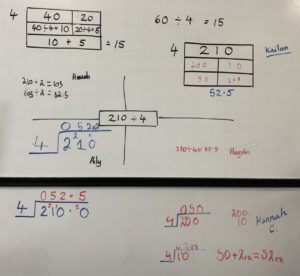 4
40 20
40÷4=10 20÷4=5
10 + 5 = 15
60 ÷ 4 = 15
4
210
200 10
50 2.5
52.5
Kaelan
Hannah
210÷2=105
105÷2=52.5
210 ÷ 4
052
4 210
210÷4=52.5
Hayden
052.5
4 210.0
050
4 200
200
10
Hannah
C.
4 10
50+2r2=52r2